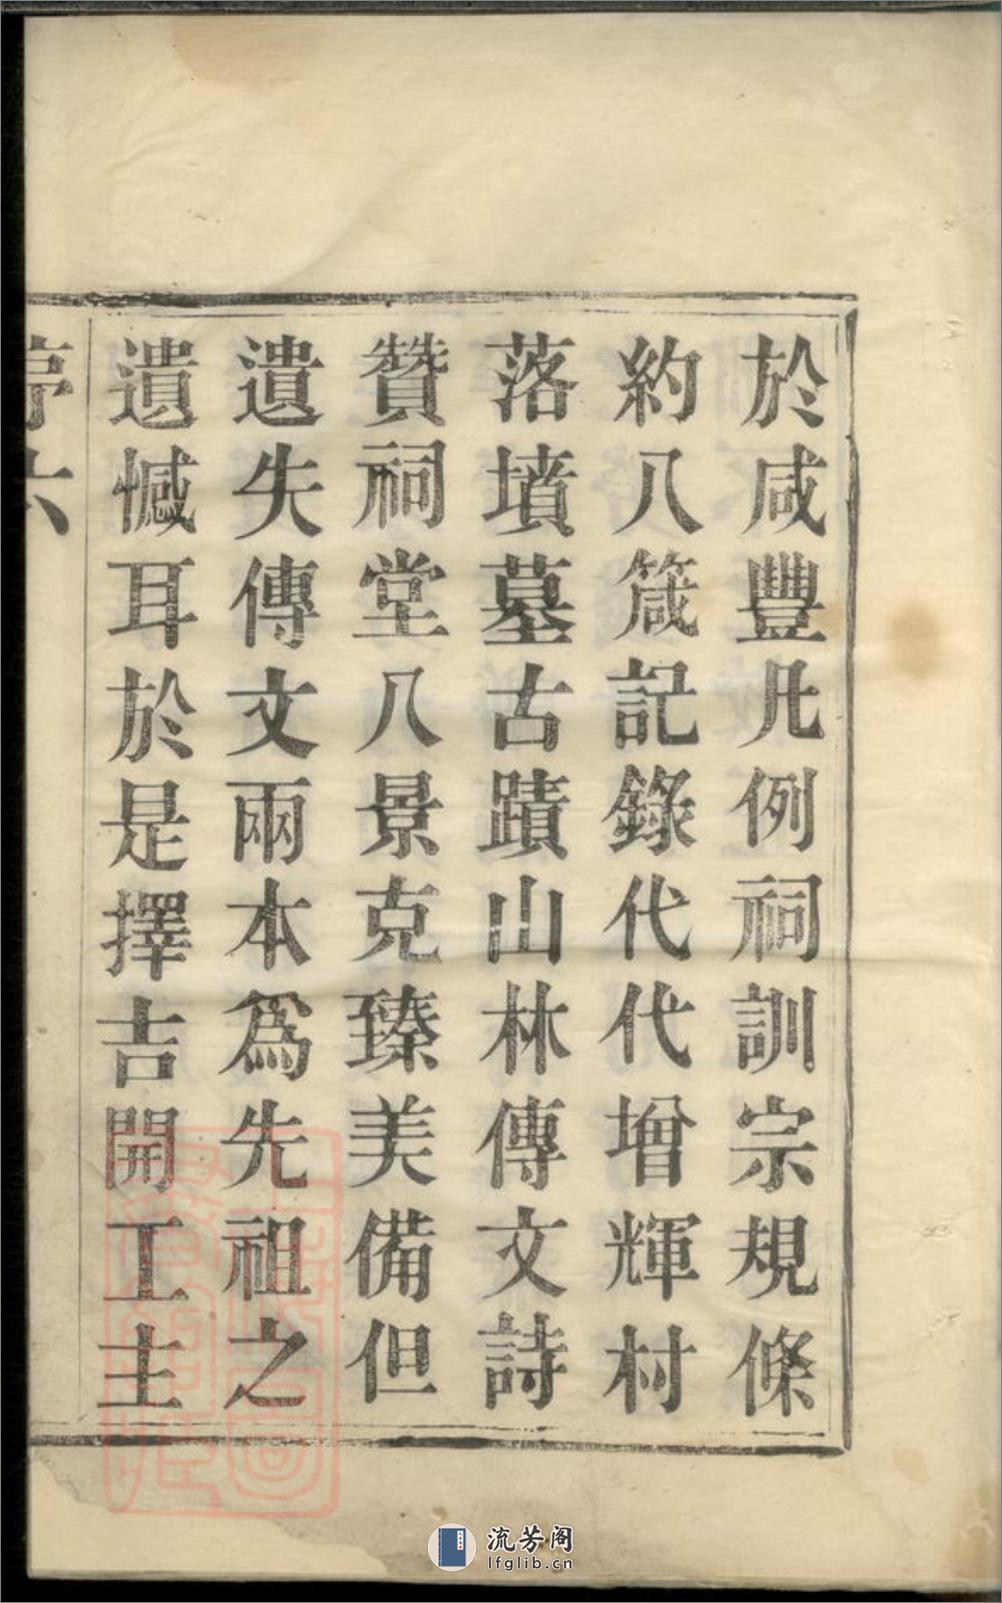 於咸豐凡例祠訓宗規條
約八箴記錄代代增輝村
落墳墓古蹟山林傳文詩
贊祠堂八景克臻美備但
遺失傳文兩本爲先祖之
遺憾耳於是擇吉開工主
流芳阁
lfglib.cn